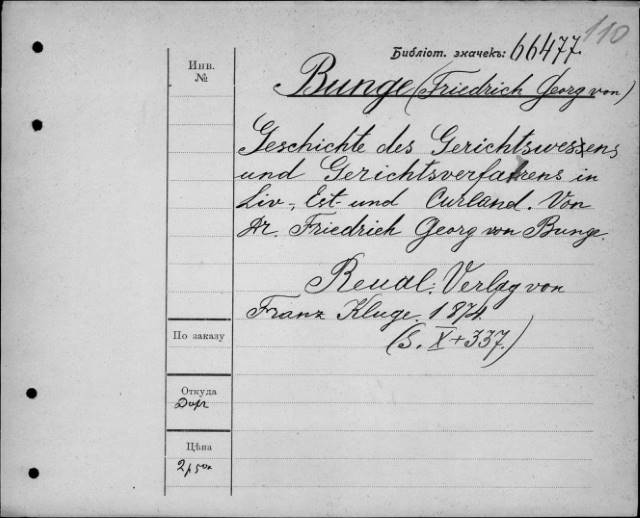 110
Библіот. значекъ: 66477.
Инв.
№
Bunge (Friedrich Georg von)
Geschichte des Gerichtswesens
und Gerichtsverfahrens in
Liv-, Est- und Curland. Von
Dr. Friedrich Georg von Bunge.
Reval. Verlag von
Franz Kluge. 1874.
(S. X+337.)
По заказу
Откуда
Цѣна